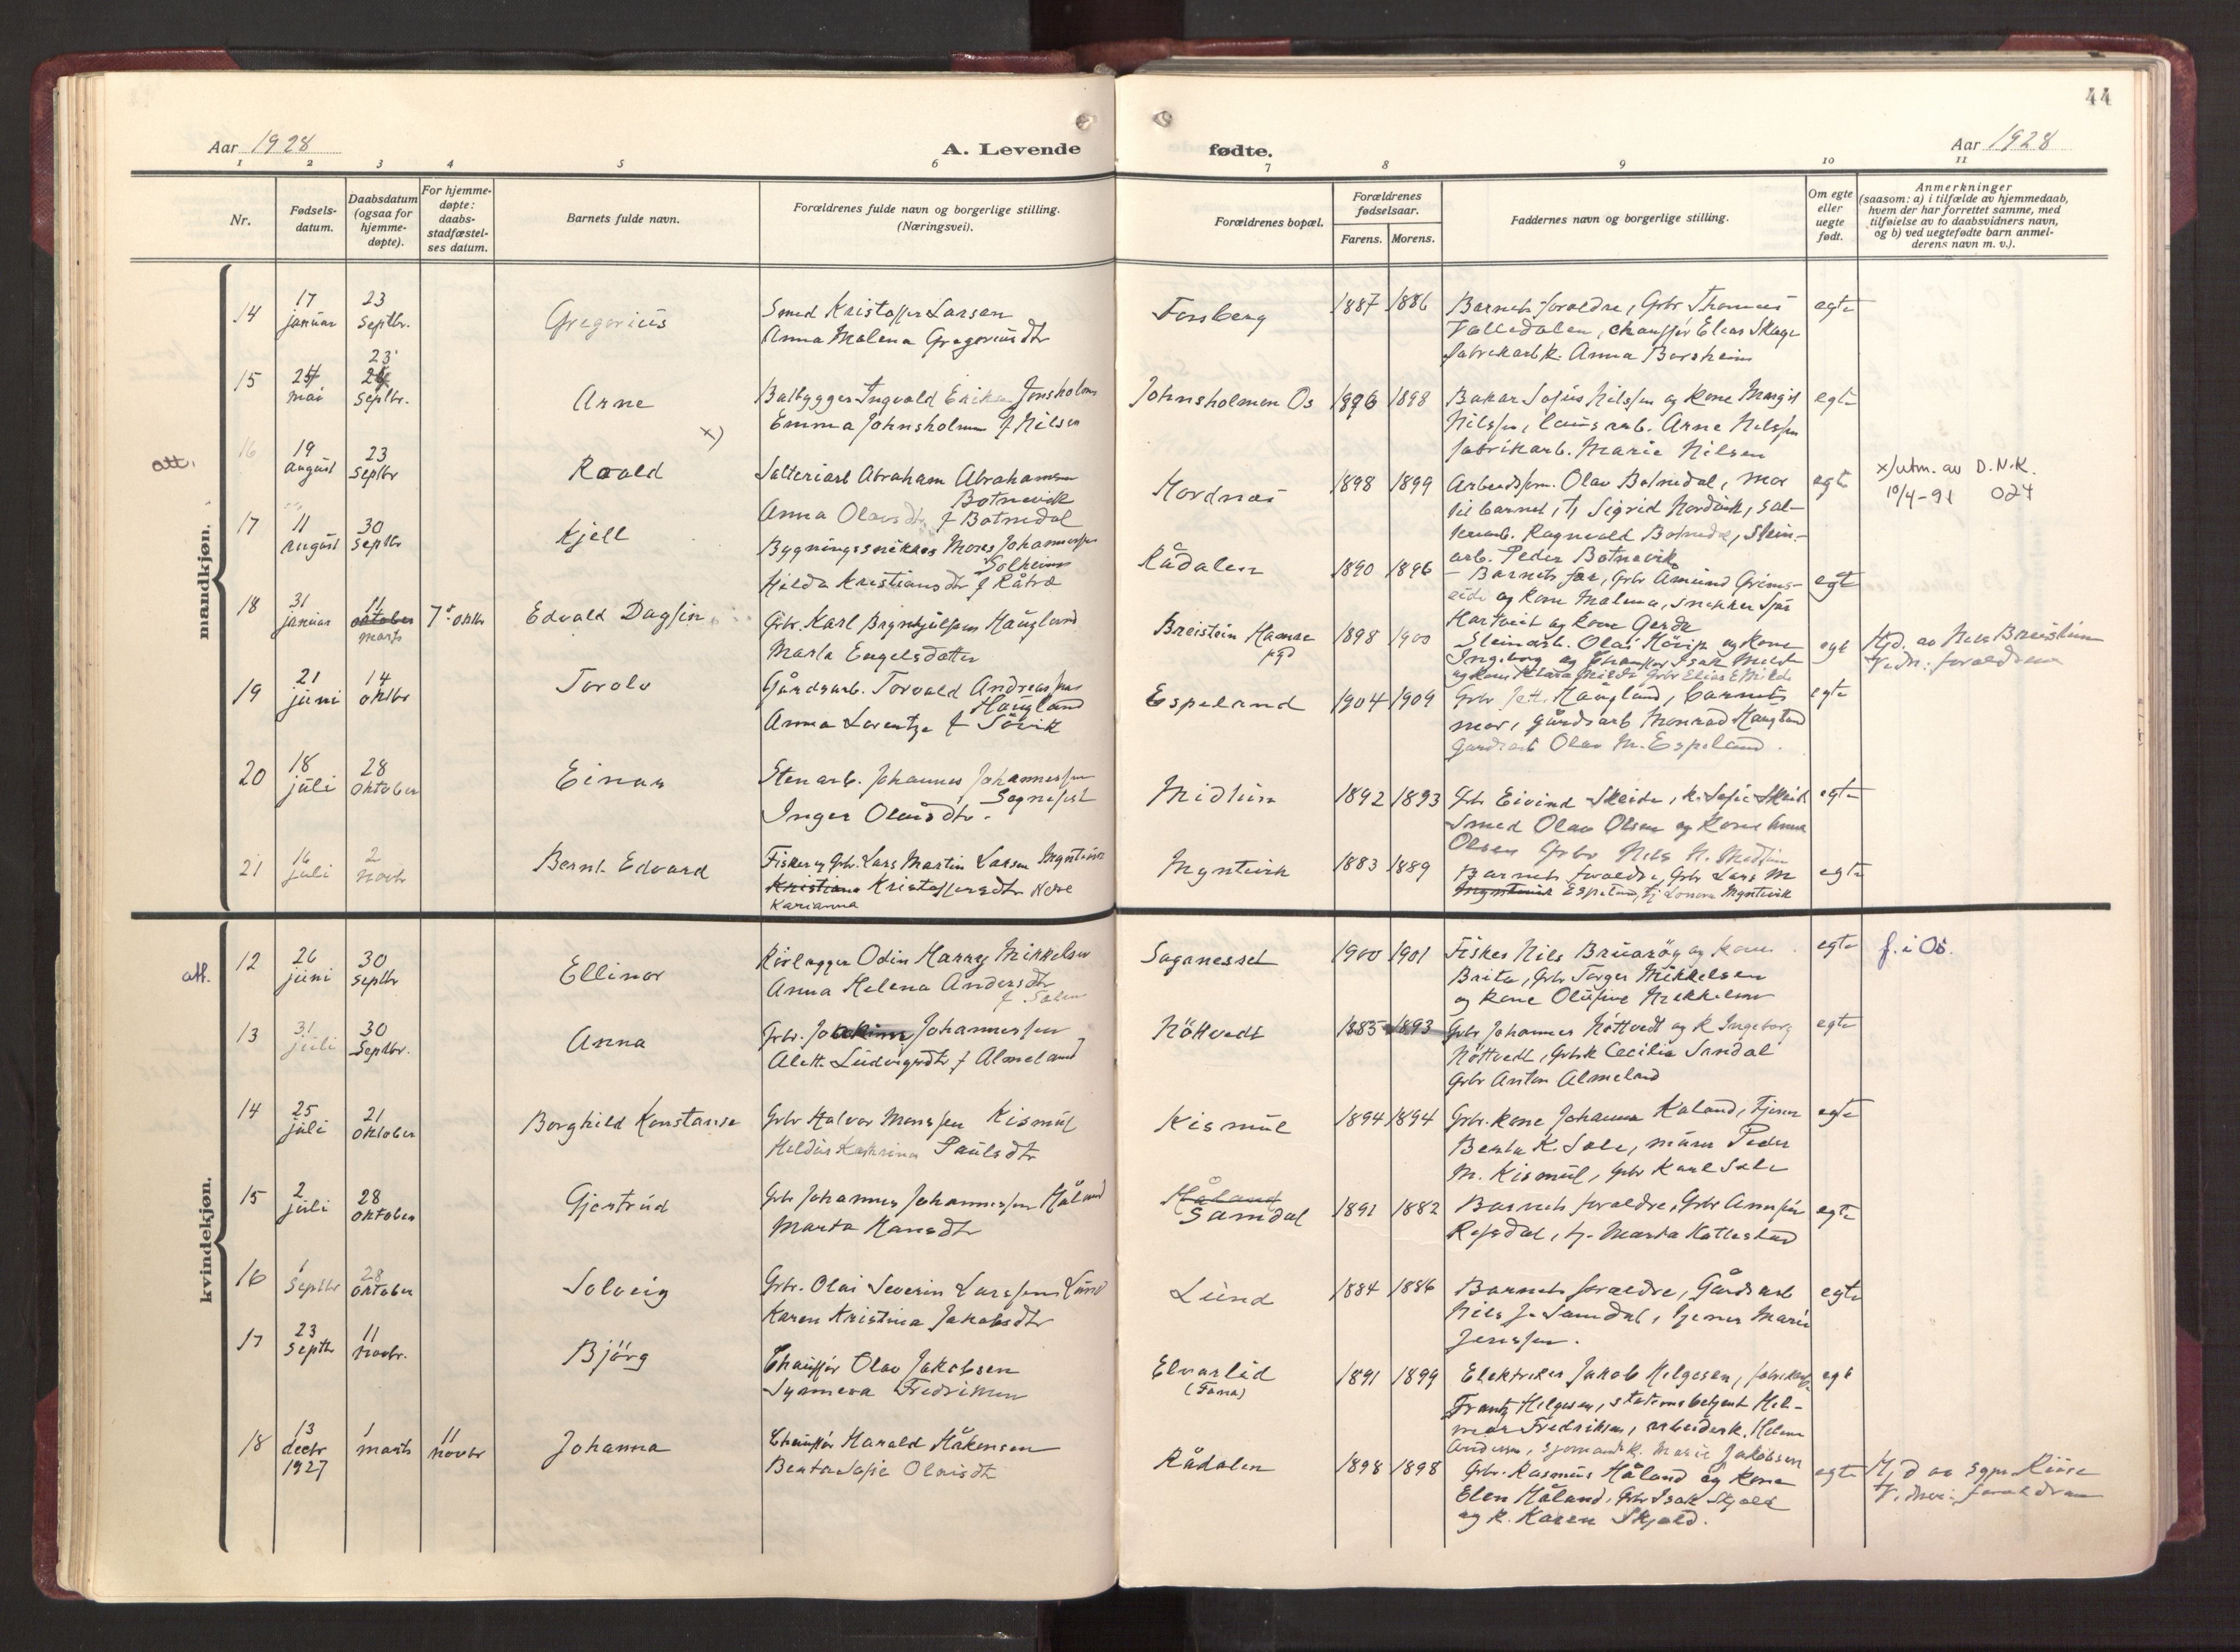 44
Aar 1928
A. Levende
fødte.
Aar 1928
1 2 3 4 5 6 7 8 9 10 11
Nr.
Fødsels-
datum.
Daabsdatum
(ogsaa for
hjemme-
døpte).
For hjemme-
døpte:
daabs-
stadfæstel-
ses datum.
Barnets fulde navn.
Forældrenes fulde navn og borgerlige stilling.
(Næringsvei).
Forældrenes bopæl.
Forældrenes
fødselsaar.
Farens. Morens.
Faddernes navn og borgerlige stilling.
Om egte
eller
uegte
født.
Anmerkninger
(saasom: a) i tilfælde av hjemmedaab,
hvem der har forrettet samme, med
tilføielse av to daabsvidners navn,
og b) ved uegtefødte barn anmel-
derens navn m. v.).
mandkjøn.
14
17
januar
23
Septbr.
Gregorius
Smed Kristoffer Larsen
Anna Malena Gregoriusdtr
Fonsberg
1887 1886
Barnets foraldre, Grbr Thomas
Valledalen, chauffør Elias Skage
fabrikarb k. Anna Borsheim
egte
15
mai
23
septbr.
Arne
Batbygger Ingvald Jonsholmen
Emma Johnsholmen f Nilsen
Johnsholmen Os
1896 1898
Bakar Sofus Nilssen og kone Margit
Nilssen, Arne Nilssen
fabrikarb. Marie Nilsen
egte
x)
att.
16
19
august
23
septbr
Roald
Abraham Abrahamsen
Botnevik
Anna Olavsdtr f Botnedal
Hordnæs
1898 1899
Olav Botnedal, mor
til barnet, tj Sigrid Hordvik, sal-
Ragnvald Botnedal, Stein-
arb. Peder Botnevik
egte
x/utm. av D.N.K.
10/4-91 024
17
11
august
30
septbr
Kjell
Bygningssnikkar Mons Johannessen
Solheim
Hilda Kristiansdtr f Råtræ
Rådalen
1890 1896
- Barnets far, Grbr Amund Grims-
eide og kone Malena, snekker
Hartveit og kone Gerda
egte
18
31
januar
11
oktober
marts
7' oktbr
Edvald Dagfin
Grbr. Karl Brynhjulfsen Haugland
Marta Engelsdatter
Breistein Hamre
pgd
1898 1900
Steinarb. Olai og kone
Ingeborg og Chauffør Isak Milde
og kone Klara Milde Grbr Elias E Milde
egte
Hjd. av Nils Breistein
Vidn: foraldrene
19
21
juni
14
oktbr
Torolv
Gårdsarb. Torvald Andreassen
Haugland
Anna Lorentze f Søvik
Espeland
1904 1909
Grbr Haugland, barnets
mor, gårdsarb Monrad Haugland
Gardsarb Olav M. Espeland.
egte
20
18
juli
28
Oktober
Einar
Stenarb. Johannes Johannessen
Sognefest
Inger Olaisdtr.
Midtun
1892 1893
Grbr Eivind Skeide, k. Sofie Skeide
Smed Olav Olsen og kone Anna
Olsen Grbr Nils N. Midttun
egte
21
16
juli
2
Novbr
Bernt Edvard
Fisker og Grbr. Lars Martin Larsen Myntevik
Kristiane Kristoffersdtr
Karianna
Myntevik
1883 1889
Barnets foraldre, Grbr Lars M
Myntevik Espeland, tj Lonora Myntevik
egte
kvindekjøn.
att.
12
26
juni
30
septbr
Ellinor
Rørlegger Odin Harry Mikkelsen
Anna Helena Andersdtr
Saganesset
1900 1901
Fisker Nils Bruarøy og kone
Brita, Grbr Torger Mikkelsen
og kone Olufine Mikkelsen
egte
f. i Os.
13
31
juli
30
Septbr.
Anna
Grbr. Joakim Johannessen
Alett. Ludvigsdtr f Almeland
Nöttvedt
1885 1893
Grbr Johannes Nöttvedt og k Ingeborg
Nöttvedt, Grbrk Cecilia Sandal
Grbr Anton Almeland
egte
14
25
juli
21
oktober
Borghild Konstanse
Grbr Halvor Monssen Kismul
Katrina Paulsdtr
Kismul
1894 1894
Grbr. kone Johanna Kaland, tjener
Berta K. Sale, murer Peder
M. Kismul, Grbr Karl Sale
egte
15
2
juli
28
oktober
Gjertrud
Grbr Johannes Johannessen Håland
Marta Hansdtr
Håland
Samdal
1891 1882
Barnets foraldre, Grbr Amfin
Refsdal, tj. Marta Hatlestad
egte
16
1
septbr
28
oktober
Solveig
Grbr. Olai Severin Larssen Lund
Karen Kristina Jakobsdtr
Lund
1884 1886
Barnets foraldre, Gårdsarb
Nils J. Samdal, tjener Marie
Jenssen.
egte
17
23
septbr
11
Novbr.
Bjørg
Chauffør Olav Jakobsen
Synneva Fredriksen
Elvarlid
(Fana)
1891 1899
Elektriker Jakob Helgesen,
Frantz Helgesen, stationsbetjent Hil-
mar Fredriksen, arbeiderk. Helene
Andersen, sjømandsk. Marie Jakobsen
egte
18
13
decbr
1927
1
marts
11
novbr
Johanna
Chauffør Harald Håkonsen
Berta Sofie Olaisdtr
Rådalen
1898 1898
Grbr. Rasmus Håland og kone
Elen Håland, Grbr Isak Skjold
og k. Karen Skjold.
egte
Hj d av
Vidner: foraldrene